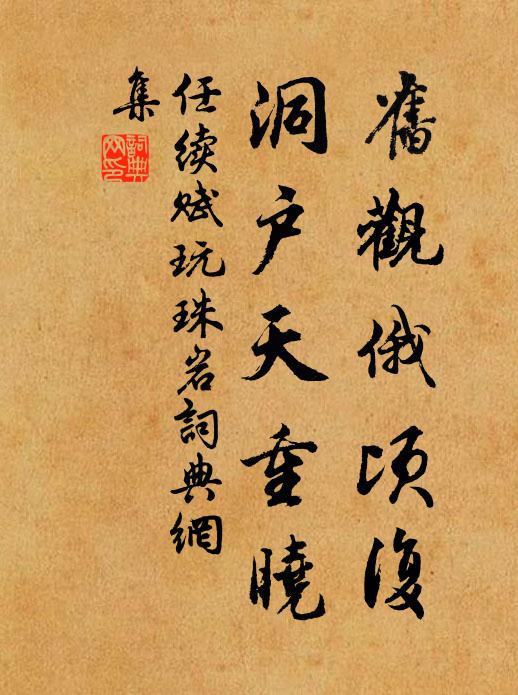 舊觀俄頃復
洞户天重曉
任续赋玩珠岩詞典網
集
詞典
网印